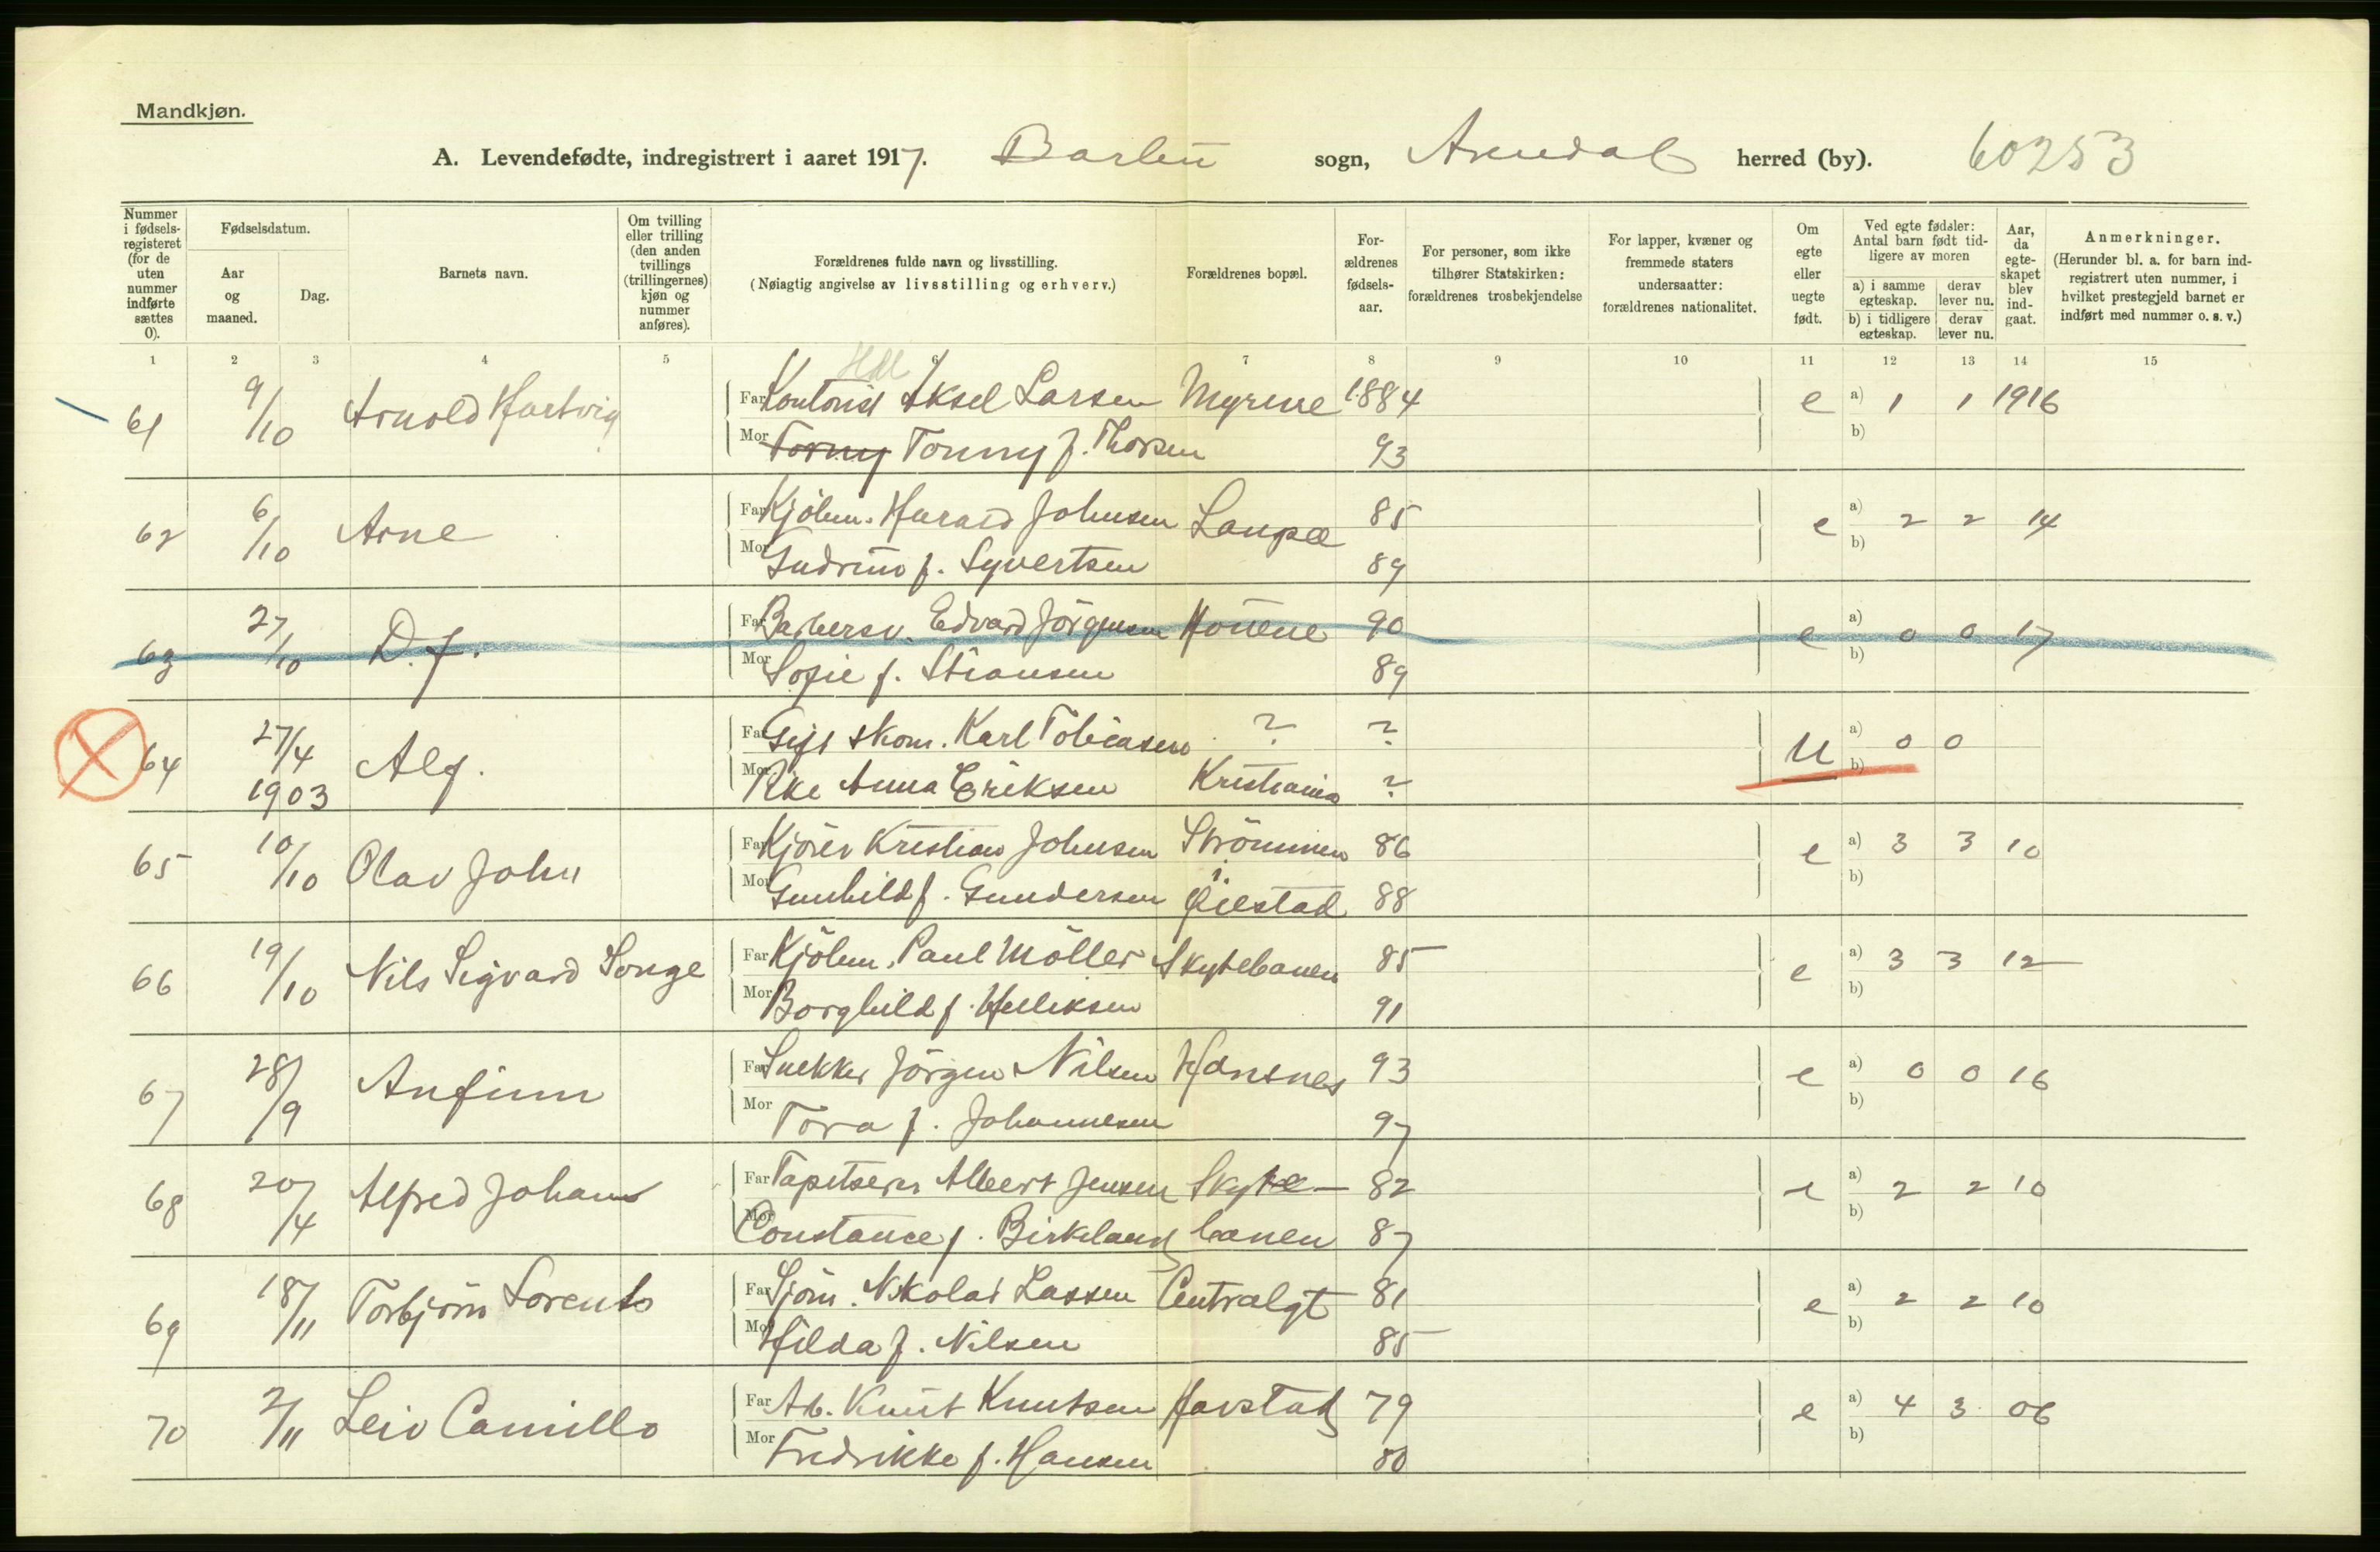 Mandkjøn.
A. Levendefødte, indregistrert i aaret 1917. Barbu sogn, Arendal herred (by). 60253
Nummer i fødsels-registeret (for de uten nummer indførte sættes 0).
Fødselsdatum.
Aar og maaned.
Dag.
Barnets navn.
Om tvilling eller trilling (den anden tvillings (trillingernes) kjøn og nummer anføres).
Forældrenes fulde navn og livsstilling.
(Nøiagtig angivelse av livsstilling og erhverv.)
Forældrenes bopæl.
For-ældrenes fødsels-aar.
For personer, som ikke tilhører Statskirken: forældrenes trosbekjendelse
For lapper, kvæner og fremmede staters undersaatter: forældrenes nationalitet.
Om egte eller uegte født.
Ved egte fødsler: Antal barn født tid-ligere av moren
a) i samme egteskap.
derav lever nu.
b) i tidligere egteskap.
derav lever nu.
Aar, da egte-skapet blev ind-gaat.
Anmerkninger.
(Herunder bl. a. for barn ind-registrert uten nummer, i hvilket prestegjeld barnet er indført med nummer o. s. v.)
1 2 3 4 5 6 7 8 9 10 11 12 13 14 15
61 9/10 Arnold Hartvig Far Kontorist Aksel Larsen Myrene 1884 e a) 1 1 1916
Mor Torny Tonny f. Thorsen 93 b)
62 6/10 Arne Far Kjölm. Harald Johnsen Langsæ 85 e a) 2 2 14
Mor Gudrun f. Syvertsen 89 b)
63 27/10 D.f. Far Barbersv. Edvard Jörgensen 90 e a) 0 0 17
Mor Sofie f. Stiansen 89 b)
64 27/4 1903 Alf. Far Gift skom. Karl Tobiasen ? ? U a) 0 0
Mor Pike Anna Eriksen Kristiania ? b)
65 10/10 Olav John Far Kjörer Kristian Johnsen Strömmen 86 e a) 3 3 10
Mor Gunhild f. Gundersen Öiestad 88 b)
66 19/10 Nils Sigvard Songe Far Kjölm. Paul Möller Skytebanen 85 e a) 3 3 12
Mor Borghild f. Helliksen 91 b)
67 28/9 Anfinn Far Snekker Jörgen Nilsen Hansnes 93 e a) 0 0 16
Mor Tora f. Johannesen 97 b)
68 20/4 Alfred Johan Far Tapetserer Albert Jensen Skyte- 82 e a) 2 2 10
Mor Constance f. Birkeland banen 87 b)
69 18/11 Torbjörn Lorents Far Sjöm. Nikolai Lassen Centralgt 81 e a) 2 2 10
Mor Hilda f. Nilsen 85 b)
70 2/11 Leiv Camillo Far Arb. Knut Knutsen Havstad 79 e a) 4 3 06
Mor Fredrikke f. Hansen 80 b)